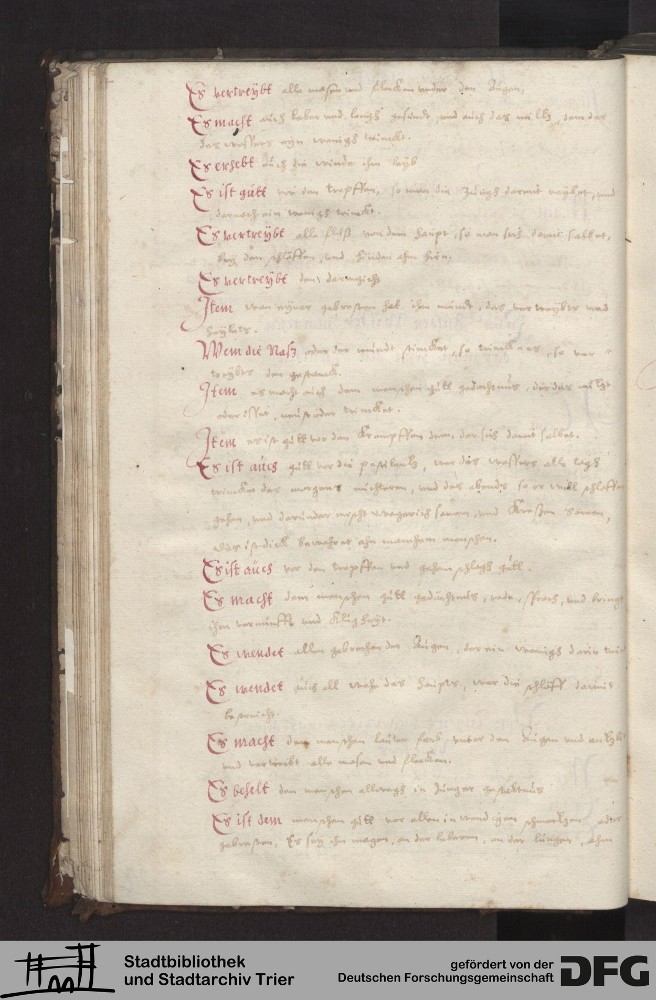 Es vertreybt alle masen und flecken under den Augen,
Es macht auch leber und lungh gesundt, und auch das miltz, dem das
das wassers eyn wenigh trinckt.
Es erhebt auch die winde ihm leyb
Es ist gütt vor den tropffen, so man die zungh darmit reybet, und
darnach ein wenigh trinckt.
Es vertreybt alle fluß von dem haupt, so man sich damit salbet,
bey den schlaffen, und hinden ahm hirn,
Es vertreybt den darmgicht
Item wan eyner gebresten hat ihm munde, das vertreybts und
heylets.
Wem die Nasz oder der mundt stincket, so trincke es, so ver
treybts den gestanck.
Item es macht auch dem menschen gütt gedechtnus, der das nützt
oder isset, neust oder trincket.
Item es ist gütt vor den Krampffen dem, der sich damit salbet.
Es ist auch gütt vor die pestilentz, wer das wassers alle tagh
trincket des morgens nüchtern, und des abends so er will schlaffen
gehen, und darunder mischt wegerich samen, und Kressen samen,
das ist dick bewehret ahn manchem menschen.
Es ist auch vor den tropffen und gehen schlagh gütt.
Es macht dem menschen gütt gedechtnus, rede, sprach, und bringt
ihm vernunfft und Klugheyt.
Es wendet allen gebrechen der Augen, der ein wenigh darin
Es wendet auch all wehe des haupts, wer die schläff damit
bestreicht.
Es macht dem menschen lauter farb unter den Augen und
und vertreibt alle masen und flecken.
Es behelt den menschen allwegh in Junger gestaltnus
Es ist dem menschen gütt vor allen inwendigen schmertzen, oder
gebresten, Es sey ihm magen, an der lebern, an der lungen, ahm
Stadtbibliothek
und Stadtarchiv Trier
gefördert von der
Deutschen Forschungsgemeinschaft
DFG